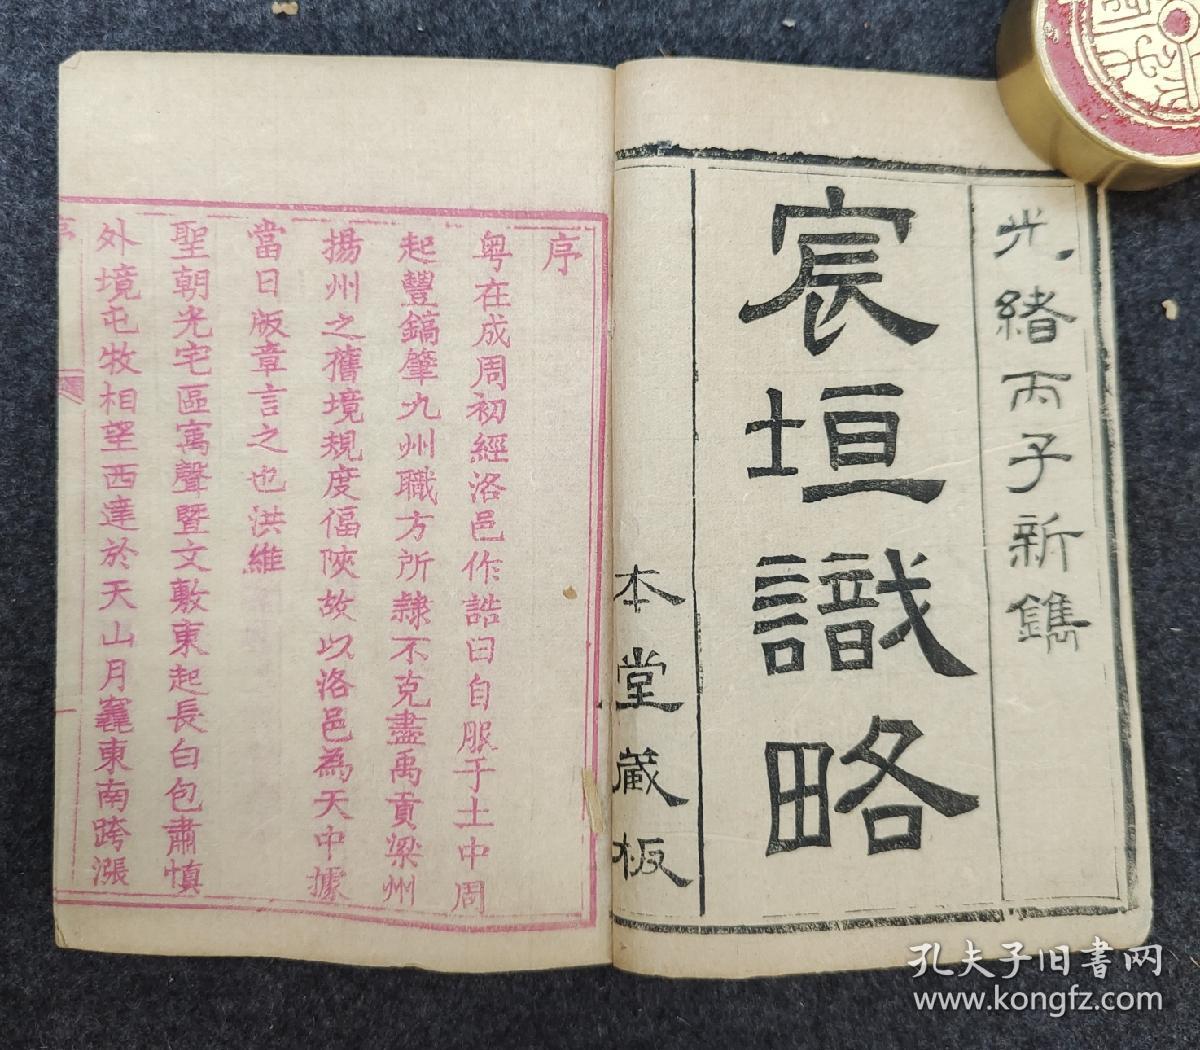 光緒丙子新鐫
宸垣識略
本堂藏板
序
粤在成周初經洛邑作誥曰自服于土中周
起豐鎬肇九州職方所隷不克盡禹貢梁州
揚州之舊境規度偪陝故以洛邑為天中據
當日版章言之也洪維
聖朝光宅區寓聲暨文敷東起長白包肅慎
外境屯牧相望西達於天山月竁東南跨漲
序
一
孔夫子旧书网
www.kongfz.com